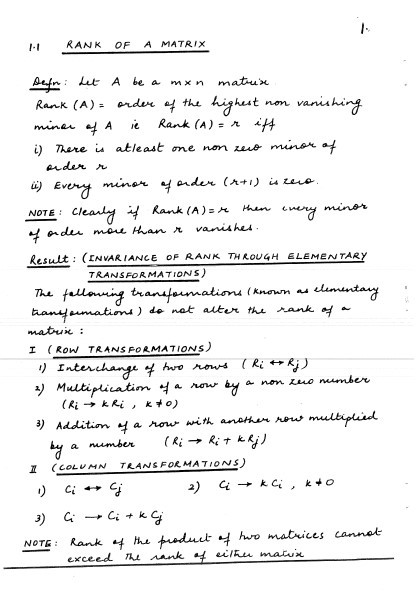 1.
1.1 RANK OF A MATRIX
Defn : Let A be a m×n matrix.
Rank (A) = order of the highest non vanishing
minor of A ie Rank (A) = r iff
i) There is atleast one non zero minor of
order r
ii) Every minor of order (r+1) is zero.
NOTE : Clearly if Rank (A) = r then every minor
of order more than r vanishes.
Result : (INVARIANCE OF RANK THROUGH ELEMENTARY
TRANSFORMATIONS)
The following transformations (known as elementary
transformations) do not alter the rank of a
matrix :
I (ROW TRANSFORMATIONS)
1) Interchange of two rows (Ri ↔ Rj)
2) Multiplication of a row by a non zero number
(Ri → k Ri , k ≠ 0)
3) Addition of a row with another row multiplied
by a number (Ri → Ri + k Rj)
II (COLUMN TRANSFORMATIONS)
1) Ci ↔ Cj 2) Ci → k Ci , k ≠ 0
3) Ci → Ci + k Cj
NOTE : Rank of the product of two matrices cannot
exceed the rank of either matrix